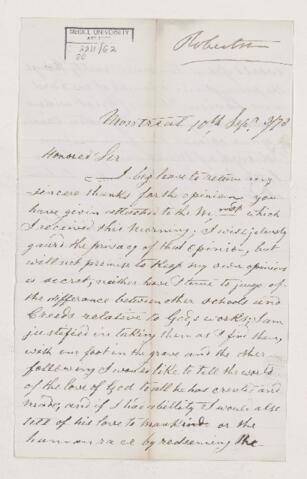 McGILL UNIVERSITY
ARCHIVES
2211/62
Robertson
Montreal 10th Sept 1878
Honored Sir
I beg leave to return my
sincere thanks for the opinion you
have given relative to the which
I received this morning. I will jelously
guard the privacy of that Opinion, but
will not promise to keep my own opinions
a secret, neither have I time to judge of
the difference between other schools and
Creeds relative to Gods works, I am
justified in taking them as I find them,
with one foot in the grave and the other
following I would like to tell the world
of the love of God to all he has created and
made, and if I had ability I would also
tell of his love to mankind or the
human race by redeeming the